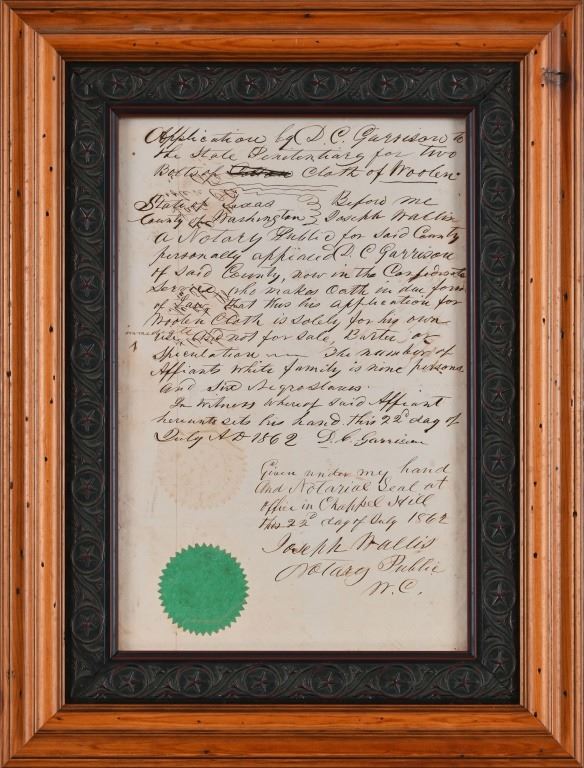 Application by D. C. Garrison to
the State Penitentiary for two
Bolts of Cloth of Woolen
State of Texas Before me
County of Washington Joseph Wallis
a Notary Public for said County
personally appeared D. C. Garrison
of said County, now in the Confederate
Service who makes Oath in due form
of Law, that this his application for
Woolen Cloth is solely for his own
immediate
use, and not for sale, Barter, or
Speculation — The number of
Affiants white family is nine persons
and six Negro slaves.
In Witness whereof said Affiant
hereunto sets his hand this 22d day of
July A D 1862 D. C. Garrison
Given under my hand
and Notarial Seal at
office in Chappel Hill
this 22d day of July 1862
Joseph Wallis
Notary Public
W. C.